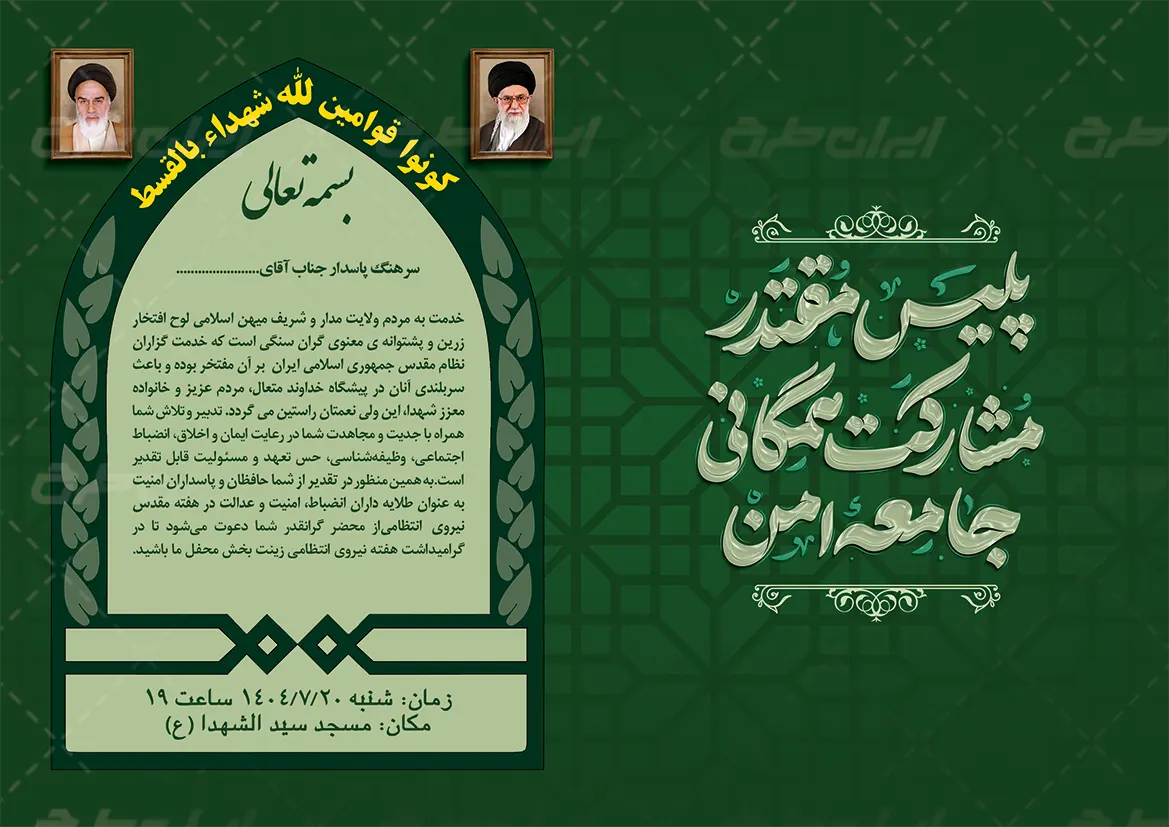 كونوا قوامين لله شهداء بالقسط
بسمه تعالی
سرهنگ پاسدار جناب آقای.......................
خدمت به مردم ولایت مدار و شریف میهن اسلامی لوح افتخار
زرین و پشتوانه ی معنوی گران سنگی است که خدمت گزاران
نظام مقدس جمهوری اسلامی ایران بر آن مفتخر بوده و باعث
سربلندی آنان در پیشگاه خداوند متعال، مردم عزیز و خانواده
معزز شهدا، این ولی نعمتان راستین می گردد. تدبیر و تلاش شما
همراه با جدیت و مجاهدت شما در رعایت ایمان و اخلاق، انضباط
اجتماعی، وظیفه‌شناسی، حس تعهد و مسئولیت قابل تقدیر
است.به همین منظور در تقدیر از شما حافظان و پاسداران امنیت
به عنوان طلایه داران انضباط، امنیت و عدالت در هفته مقدس
نیروی انتظامی‌از محضر گرانقدر شما دعوت می‌شود تا در
گرامیداشت هفته نیروی انتظامی زینت بخش محفل ما باشید.
زمان: شنبه ۱۴۰۴/۷/۲۰ ساعت ۱۹
مکان: مسجد سید الشهدا (ع)
پلیس مقتدر
مشارکت همگانی
جامعه امن
ایران طرح